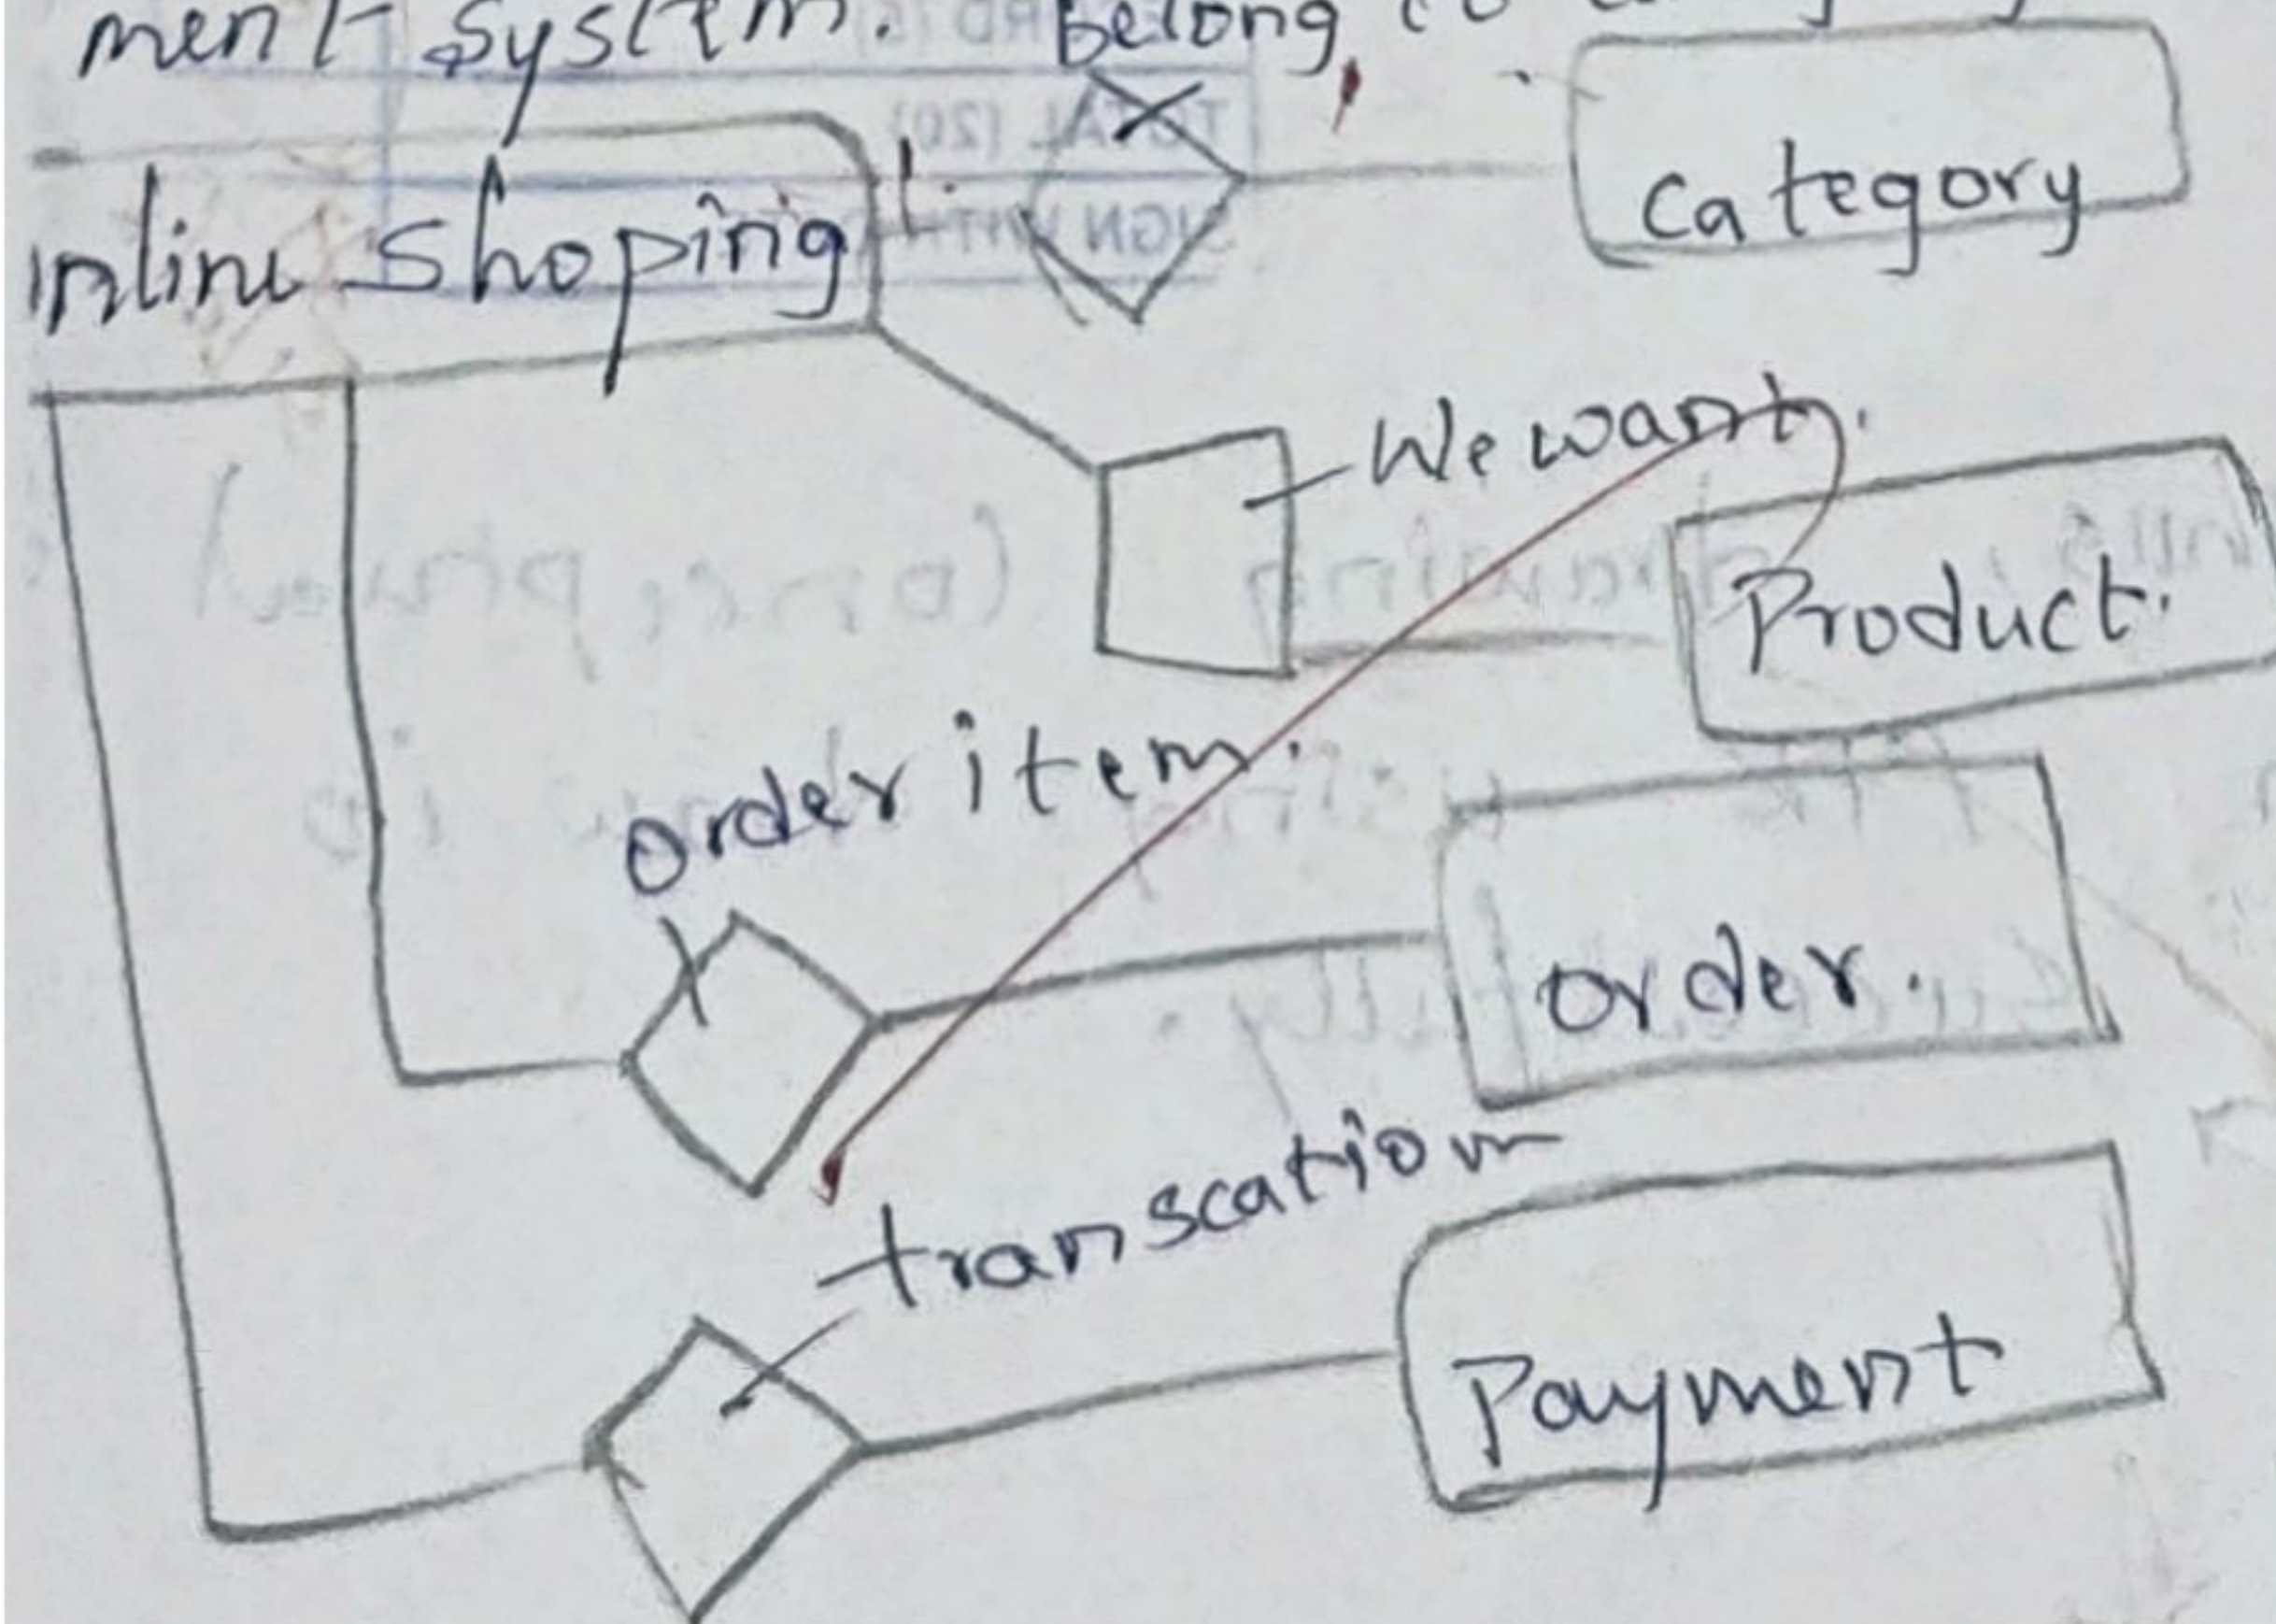 ment system. Belong to
Category
nline Shoping
We want.
Product.
order item.
order.
transcation
Payment